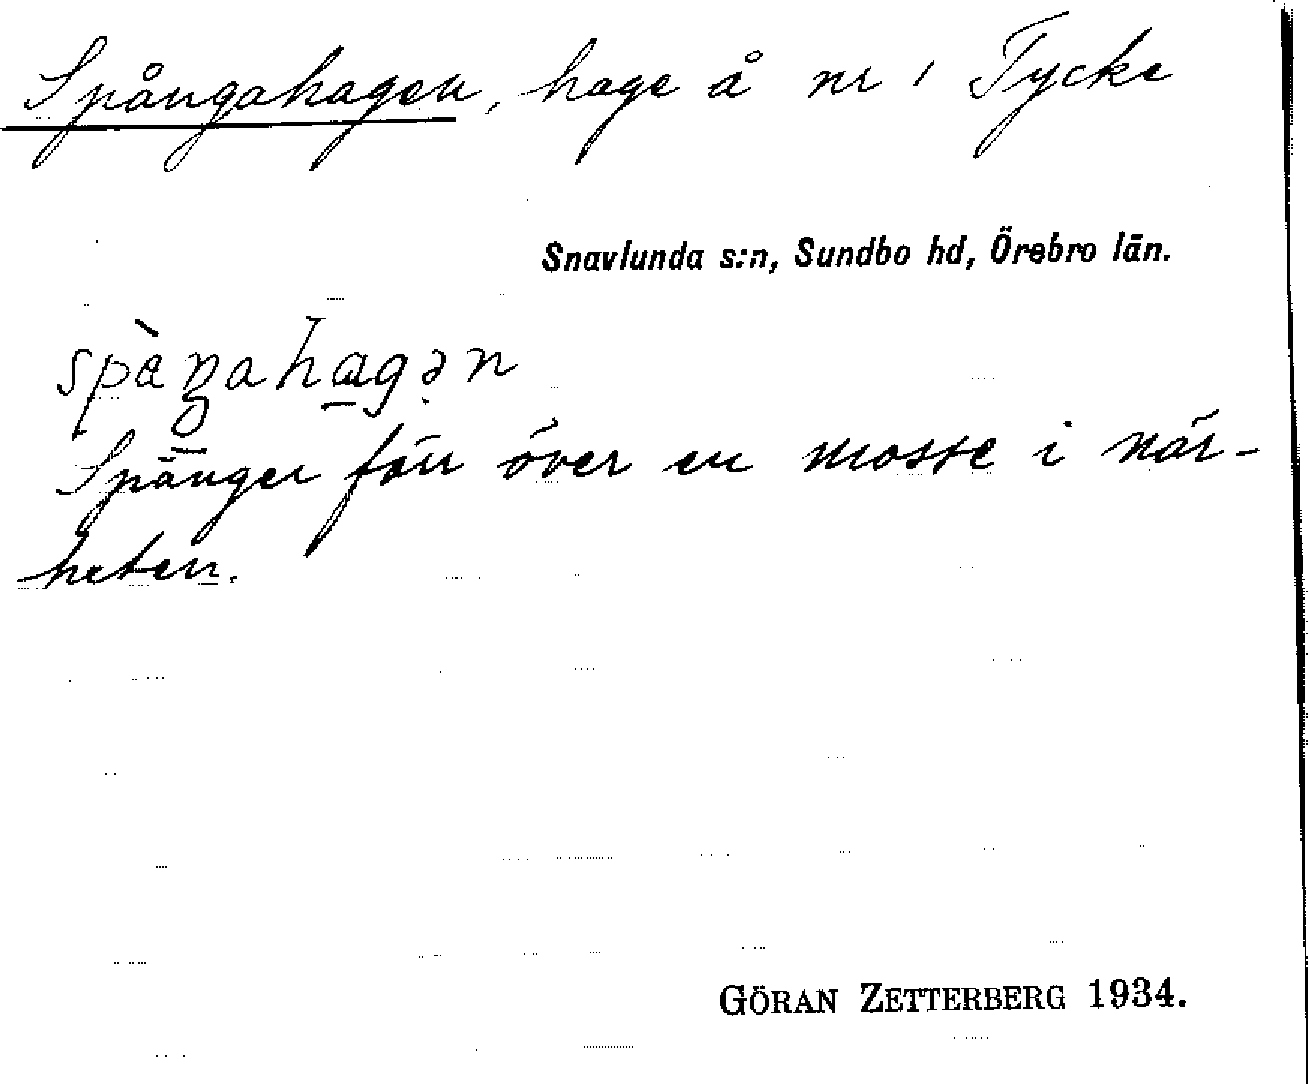 Spångahagen, hage å nr 1 Tycke
Snavlunda s:n, Sundbo hd, Örebro län.
Spänger förr över en mosse i när-
heten.
GÖRAN ZETTERBERG 1934.